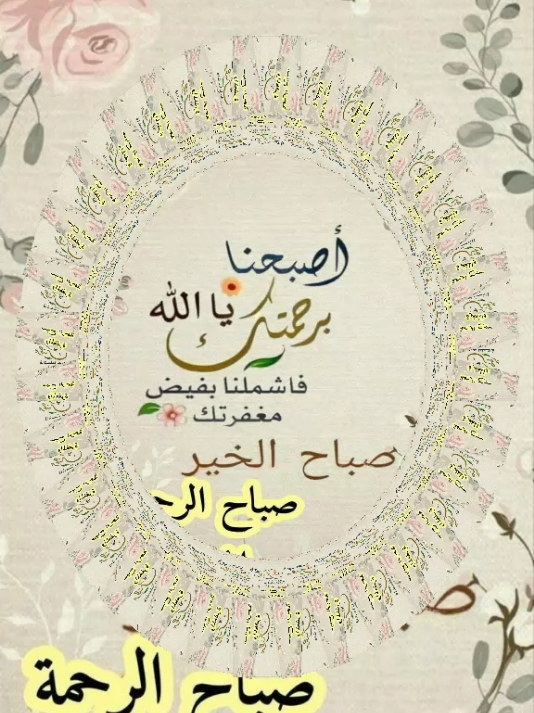 أصبحنا
برحمتك يا الله
فاشملنا بفيض
مغفرتك
صباح الخير
صباح
صباح الرحمة